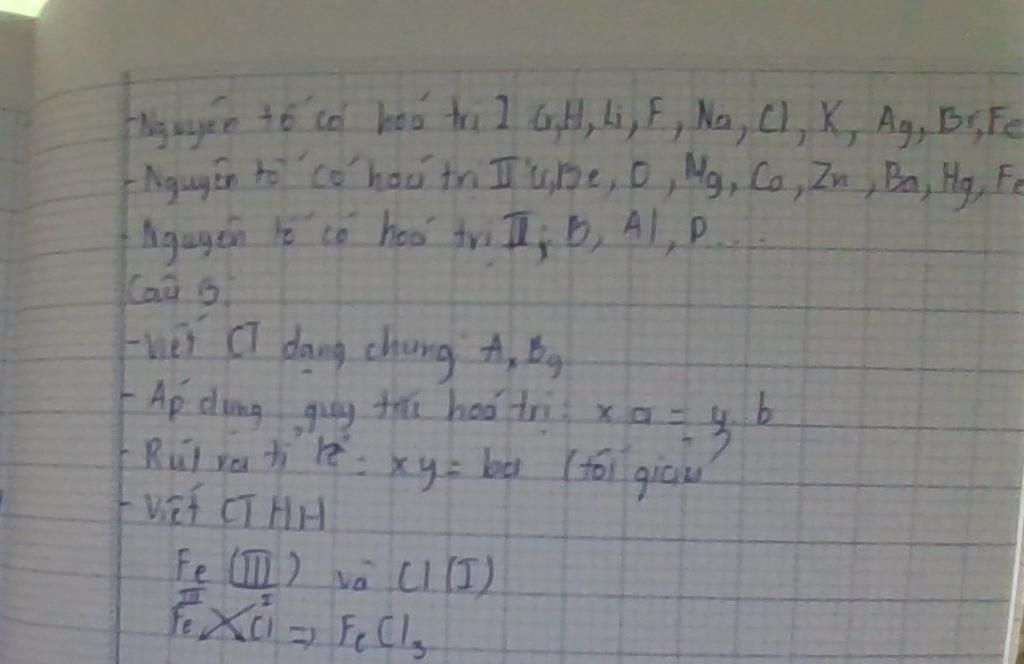 -Nguyên tố có hoá trị I Cu,H, Li, F, Na, Cl, K, Ag, Br, Fe
-Nguyên tố có hoá trị II Cu, Be, O, Mg, Ca, Zn, Ba, Hg, Fe
-Nguyên tố có hoá trị III; B, Al, P...
Câu 3:
-Viết CT dạng chung AxBy
- Áp dụng quy tắc hoá trị: x a = y. b
- Rút ra tỉ lệ: xy = ba (tối giản
- Viết CTHH
Fe (III) và Cl (I)
III I
Fe Cl => FeCl3